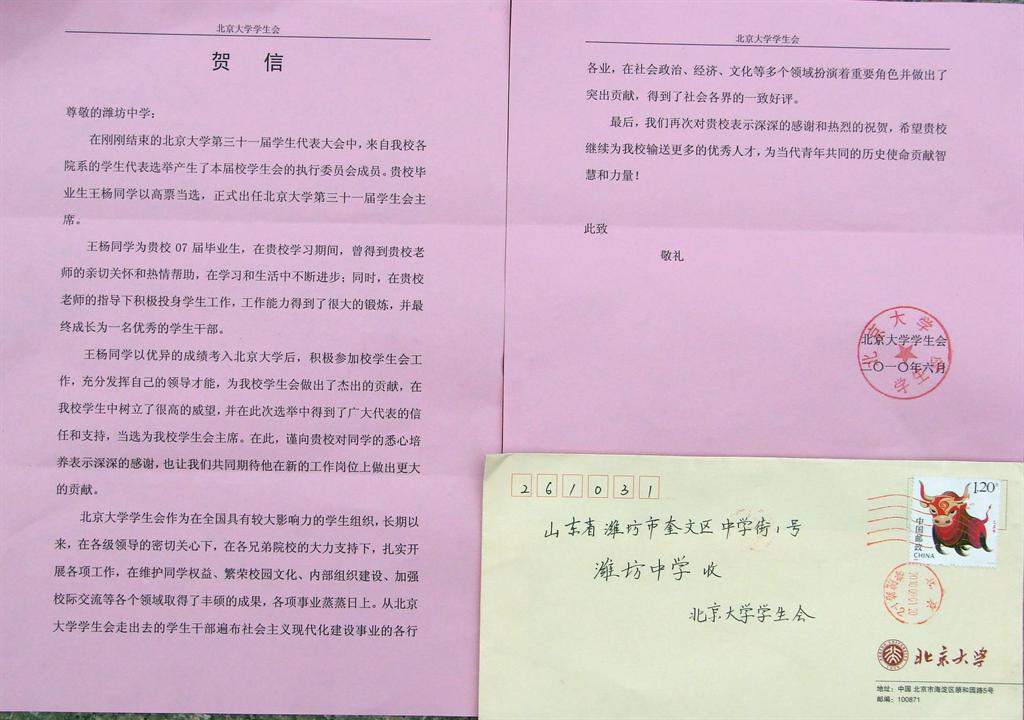 北京大学学生会
贺 信
尊敬的潍坊中学：
在刚刚结束的北京大学第三十一届学生代表大会中，来自我校各
院系的学生代表选举产生了本届校学生会的执行委员会成员。贵校毕
业生王杨同学以高票当选，正式出任北京大学第三十一届学生会主
席。
王杨同学为贵校 07 届毕业生，在贵校学习期间，曾得到贵校老
师的亲切关怀和热情帮助，在学习和生活中不断进步；同时，在贵校
老师的指导下积极投身学生工作，工作能力得到了很大的锻炼，并最
终成长为一名优秀的学生干部。
王杨同学以优异的成绩考入北京大学后，积极参加校学生会工
作，充分发挥自己的领导才能，为我校学生会做出了杰出的贡献，在
我校学生中树立了很高的威望，并在此次选举中得到了广大代表的信
任和支持，当选为我校学生会主席。在此，谨向贵校对同学的悉心培
养表示深深的感谢，也让我们共同期待他在新的工作岗位上做出更大
的贡献。
北京大学学生会作为在全国具有较大影响力的学生组织，长期以
来，在各级领导的密切关心下，在各兄弟院校的大力支持下，扎实开
展各项工作，在维护同学权益、繁荣校园文化、内部组织建设、加强
校际交流等各个领域取得了丰硕的成果，各项事业蒸蒸日上。从北京
大学学生会走出去的学生干部遍布社会主义现代化建设事业的各行
北京大学学生会
各业，在社会政治、经济、文化等多个领域扮演着重要角色并做出了
突出贡献，得到了社会各界的一致好评。
最后，我们再次对贵校表示深深的感谢和热烈的祝贺，希望贵校
继续为我校输送更多的优秀人才，为当代青年共同的历史使命贡献智
慧和力量！
此致
敬礼
北京大学学生会
二〇一〇年六月
北京大学学生会
261031
山东省潍坊市奎文区中学街1号
潍坊中学 收
北京大学学生会
1.20元
中国邮政
CHINA
北京
北京大学
地址：中国 北京市海淀区颐和园路5号
邮编：100871